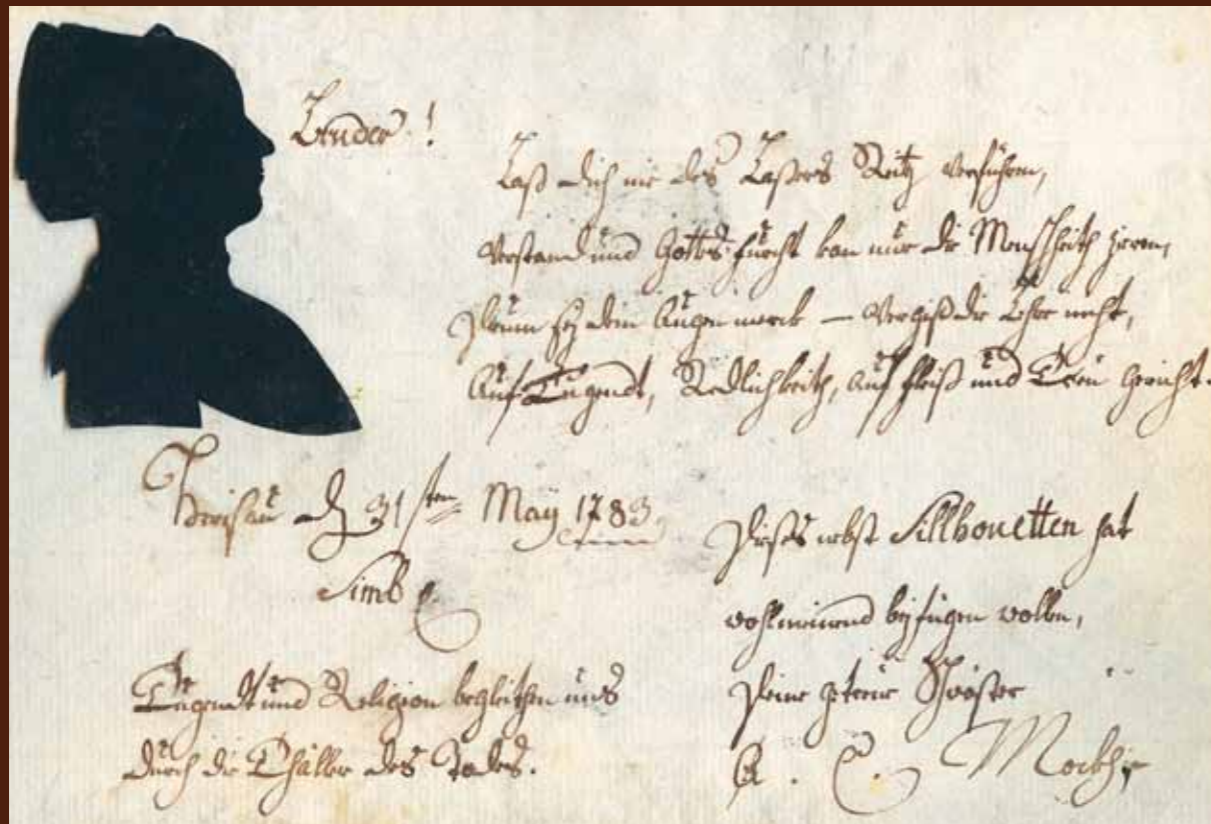 Bruder!
Laß dich nie des Lasters Reitz verführen,
Verstand und Gottes-furcht kan nur die Menschheith zieren,
Drum sey dein Augenmerck — Vergiß die Lehre nicht,
Auf Tugendt, Redlichkeith, auf Fleiß und Treu gericht.
den 31sten Maÿ 1783.
Simb
Tugendt und Religion begleithen uns
durch die Thäller des Todes.
Dieses nebst Sillhouetten hat
wohlmeinend beyfügen wollen,
Deine getreue Schwöster